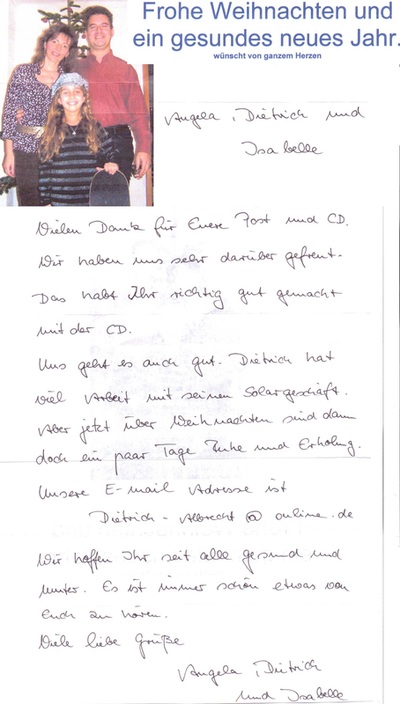 Frohe Weihnachten und
ein gesundes neues Jahr.
wünscht von ganzem Herzen
Angela, Dietrich und
Isabelle
Vielen Dank für Euere Post und CD.
Wir haben uns sehr darüber gefreut.
Das habt Ihr richtig gut gemacht
mit der CD.
Uns geht es auch gut. Dietrich hat
viel Arbeit mit seinen Solargeschäft.
Aber jetzt über Weihnachten sind dann
doch ein paar Tage Ruhe und Erholung.
Unsere E-mail Adresse ist
Dietrich-Albrecht@online.de
Wir hoffen Ihr seit alle gesund und
munter. Es ist immer schön etwas von
Euch zu hören.
Viele liebe Grüße
Angela, Dietrich
und Isabelle